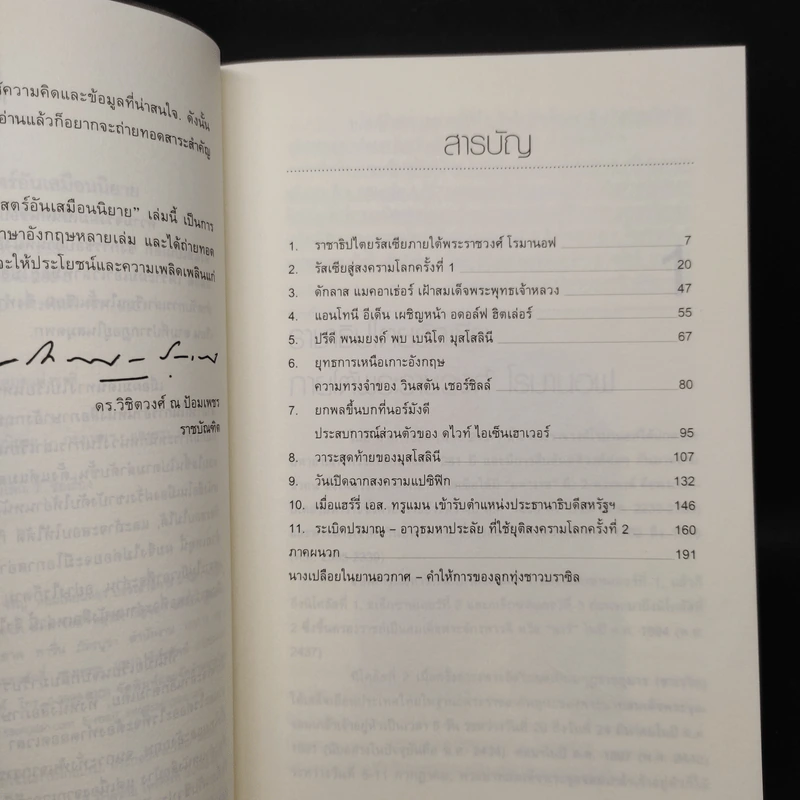 ความคิดและข้อมูลที่น่าสนใจ. ดังนั้น
อ่านแล้วก็อยากจะถ่ายทอดสาระสำคัญ
สตร์อันเสมือนนิยาย" เล่มนี้ เป็นการ
าษาอังกฤษหลายเล่ม และได้ถ่ายทอด
ะให้ประโยชน์และความเพลิดเพลินแก่
ดร.วิชิตวงศ์ ณ ป้อมเพชร
ราชบัณฑิต
สารบัญ
1. ราชาธิปไตยรัสเซียภายใต้พระราชวงศ์ โรมานอฟ 7
2. รัสเซียสู่สงครามโลกครั้งที่ 1 20
3. ดักลาส แมคอาเธ่อร์ เฝ้าสมเด็จพระพุทธเจ้าหลวง 47
4. แอนโทนี อีเด็น เผชิญหน้า อดอล์ฟ ฮิตเล่อร์ 55
5. ปรีดี พนมยงค์ พบ เบนิโต มุสโสลินี 67
6. ยุทธการเหนือเกาะอังกฤษ
ความทรงจำของ วินสตัน เชอร์ชิลล์ 80
7. ยกพลขึ้นบกที่นอร์มังดี
ประสบการณ์ส่วนตัวของ ดไวท์ ไอเซ็นเฮาเวอร์ 95
8. วาระสุดท้ายของมุสโสลินี 107
9. วันเปิดฉากสงครามแปซิฟิก 132
10. เมื่อแฮร์รี่ เอส. ทรูแมน เข้ารับตำแหน่งประธานาธิบดีสหรัฐฯ 146
11. ระเบิดปรมาณู – อาวุธมหาประลัย ที่ใช้ยุติสงครามโลกครั้งที่ 2 160
ภาคผนวก 191
นางเปลือยในยานอวกาศ – คำให้การของลูกทุ่งชาวบราซิล